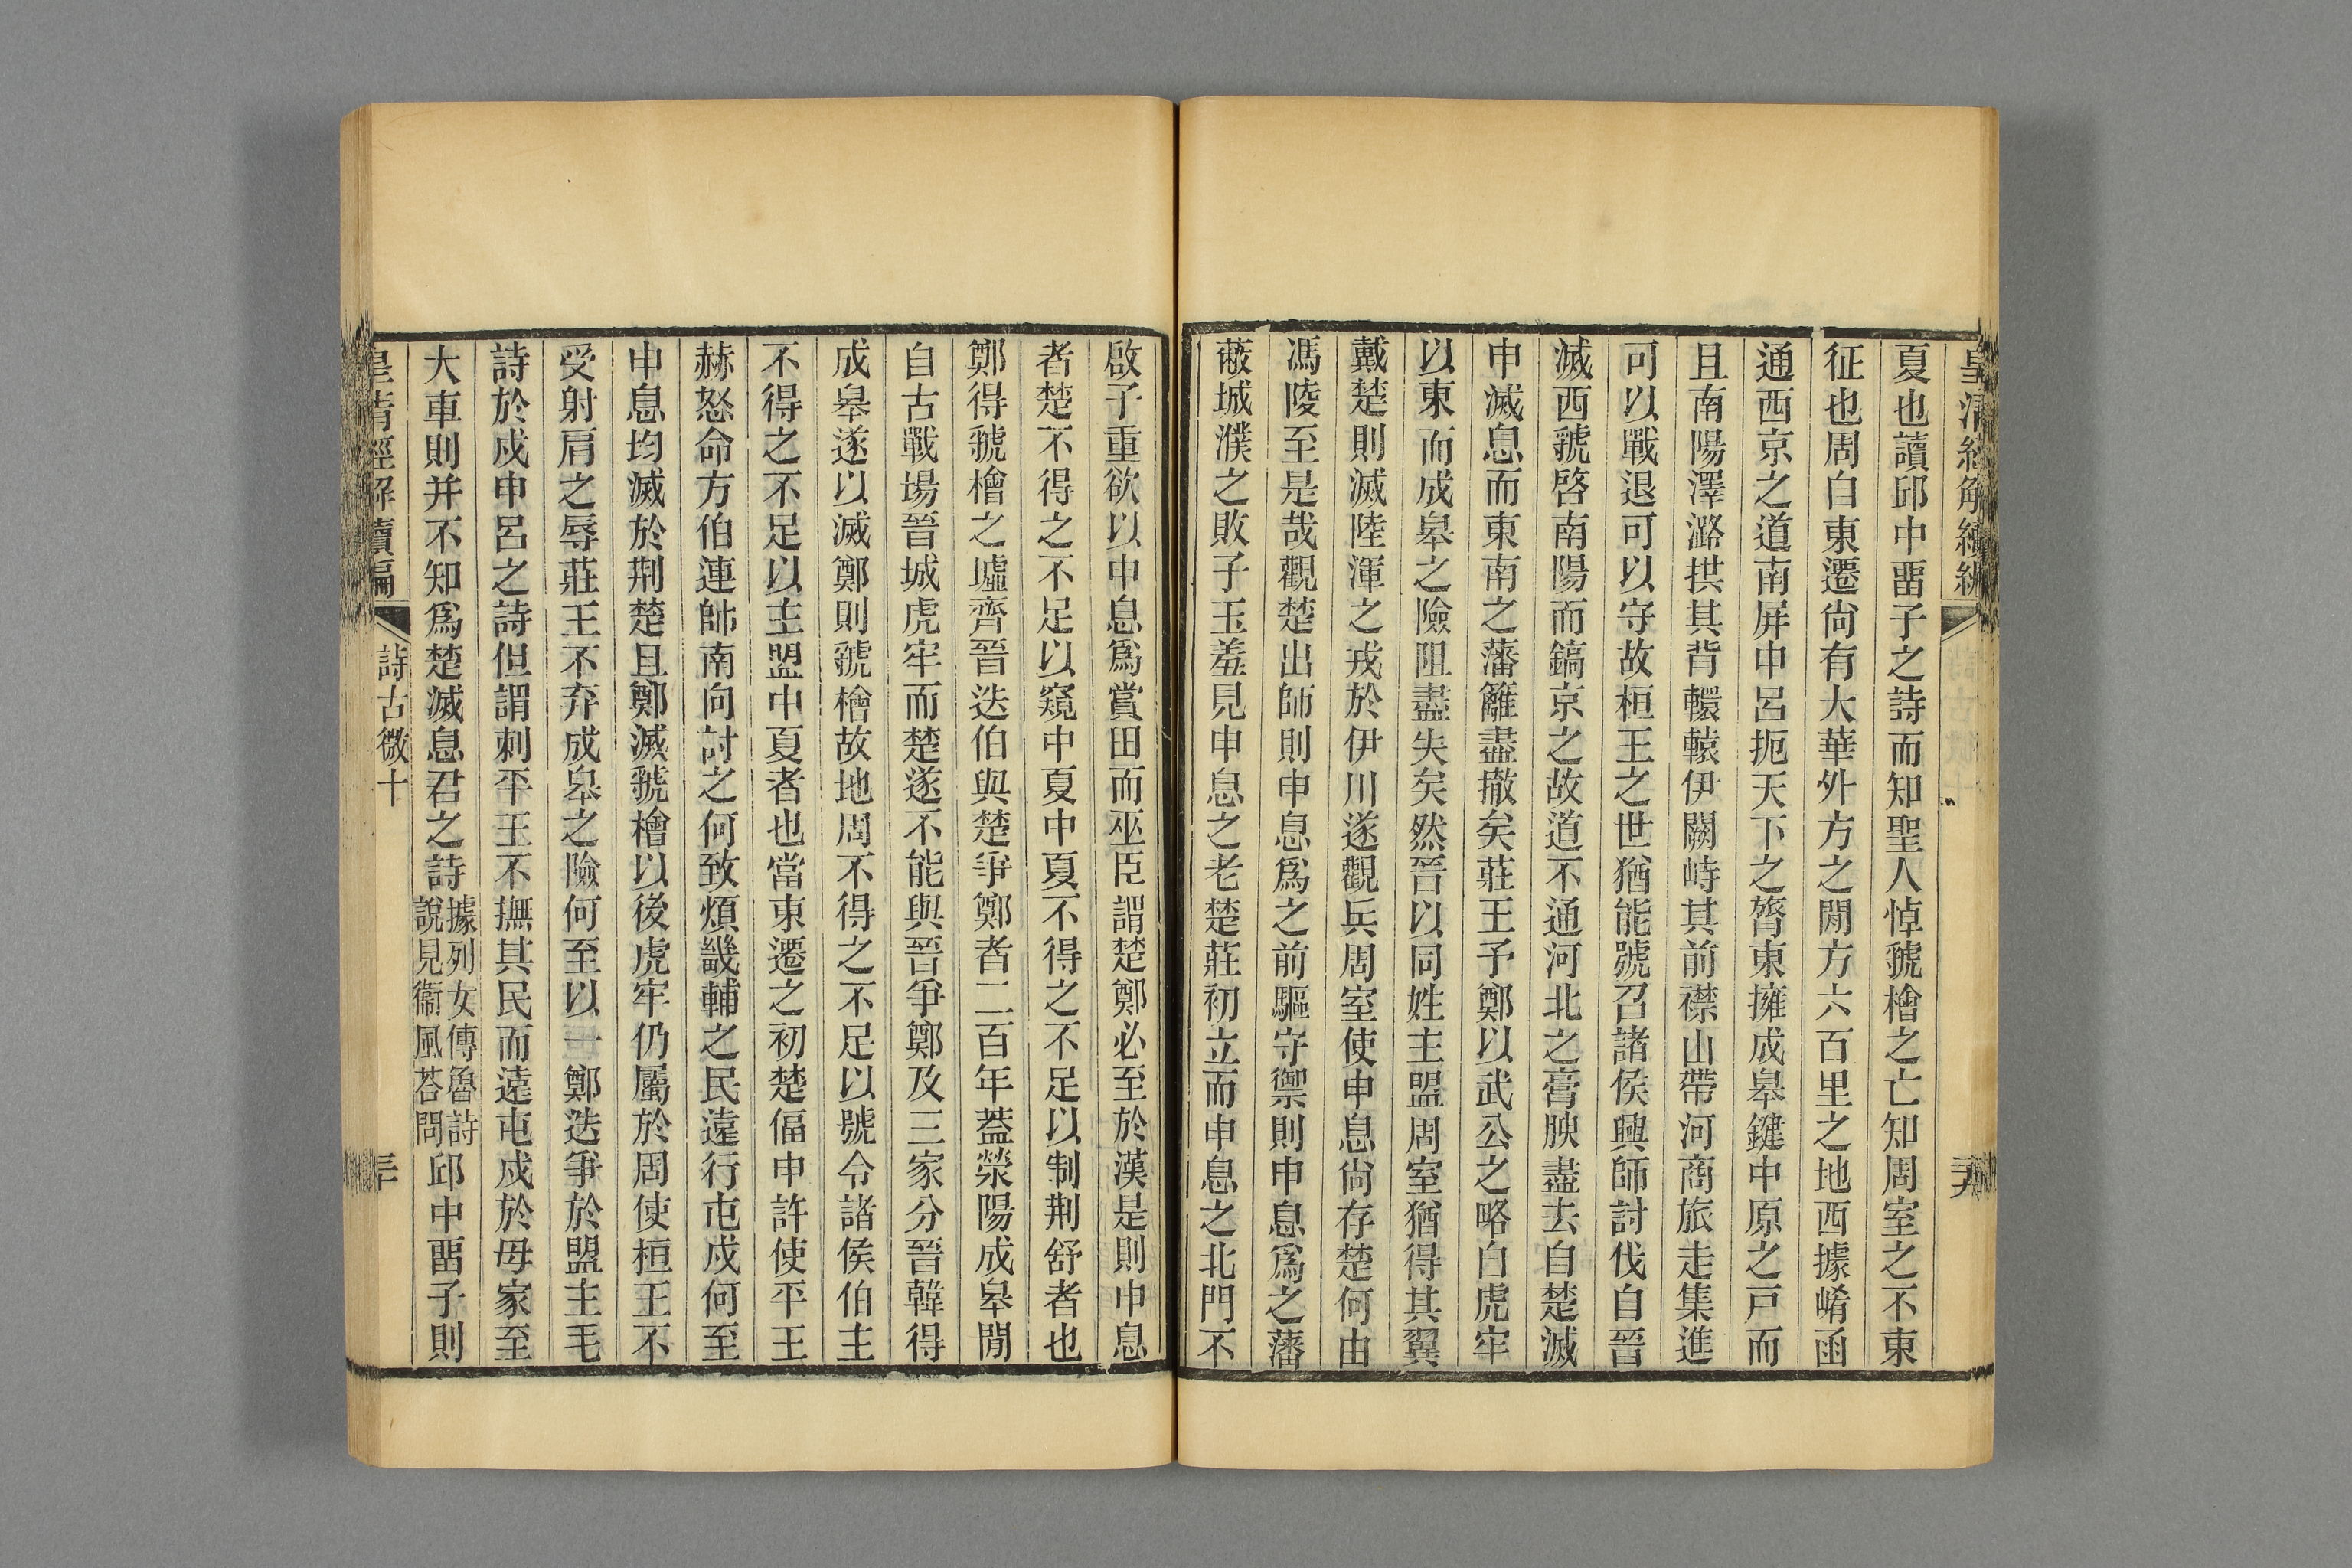 皇清經解續編
夏也讀邱中畱子之詩而知聖人悼虢檜之亡知周室之不東
征也周自東遷尙有大華外方之閒方六百里之地西據崤函
通西京之道南屏申呂扼天下之膂東擁成皋鍵中原之戸而
且南陽澤潞拱其背轘轅伊闕峙其前襟山帶河商旅走集進
可以戰退可以守故桓王之世猶能號召諸侯興師討伐自晉
滅西虢啓南陽而鎬京之故道不通河北之膏腴盡去自楚滅
申滅息而東南之藩籬盡撤矣莊王予鄭以武公之略自虎牢
以東而成皋之險阻盡失矣然晉以同姓主盟周室猶得其翼
戴楚則滅陸渾之戎於伊川遂觀兵周室使申息尙存楚何由
馮陵至是哉觀楚出師則申息爲之前驅守禦則申息爲之藩
蔽城濮之敗子玉羞見申息之老楚莊初立而申息之北門不
啟子重欲以申息爲賞田而巫臣謂楚鄭必至於漢是則申息
者楚不得之不足以窺中夏中夏不得之不足以制荆舒者也
鄭得虢檜之墟齊晉迭伯與楚爭鄭者二百年葢滎陽成皋閒
自古戰場晉城虎牢而楚遂不能與晉爭鄭及三家分晉韓得
成皋遂以滅鄭則虢檜故地周不得之不足以號令諸侯伯主
不得之不足以主盟中夏者也當東遷之初楚偪申許使平王
赫怒命方伯連帥南向討之何致煩畿輔之民遠行屯戍何至
申息均滅於荆楚且鄭滅虢檜以後虎牢仍屬於周使桓王不
受射肩之辱莊王不弃成皋之險何至以一鄭迭爭於盟主毛
詩於戍申呂之詩但謂刺平王不撫其民而遠屯戍於母家至
大車則并不知爲楚滅息君之詩據列女傳魯詩說見衞風荅問邱中畱子則
皇清經解續編 詩古微十 三十